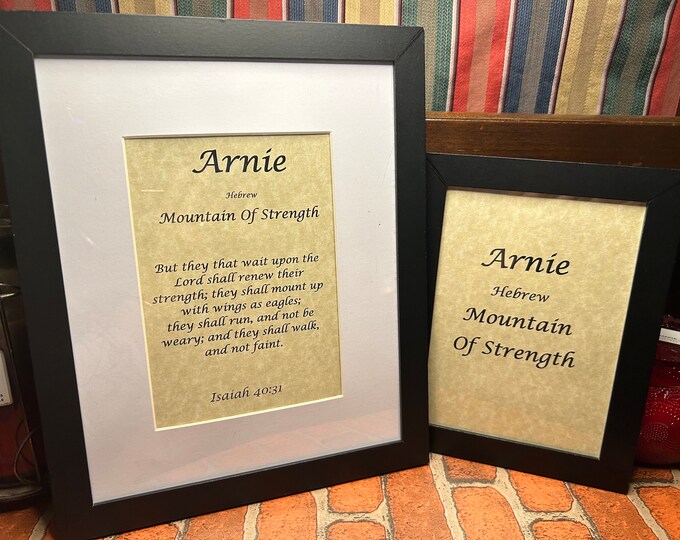 Arnie
Hebrew
Mountain Of Strength
But they that wait upon the
Lord shall renew their
strength; they shall mount up
with wings as eagles;
they shall run, and not be
weary; and they shall walk,
and not faint.
Isaiah 40:31
Arnie
Hebrew
Mountain
Of Strength